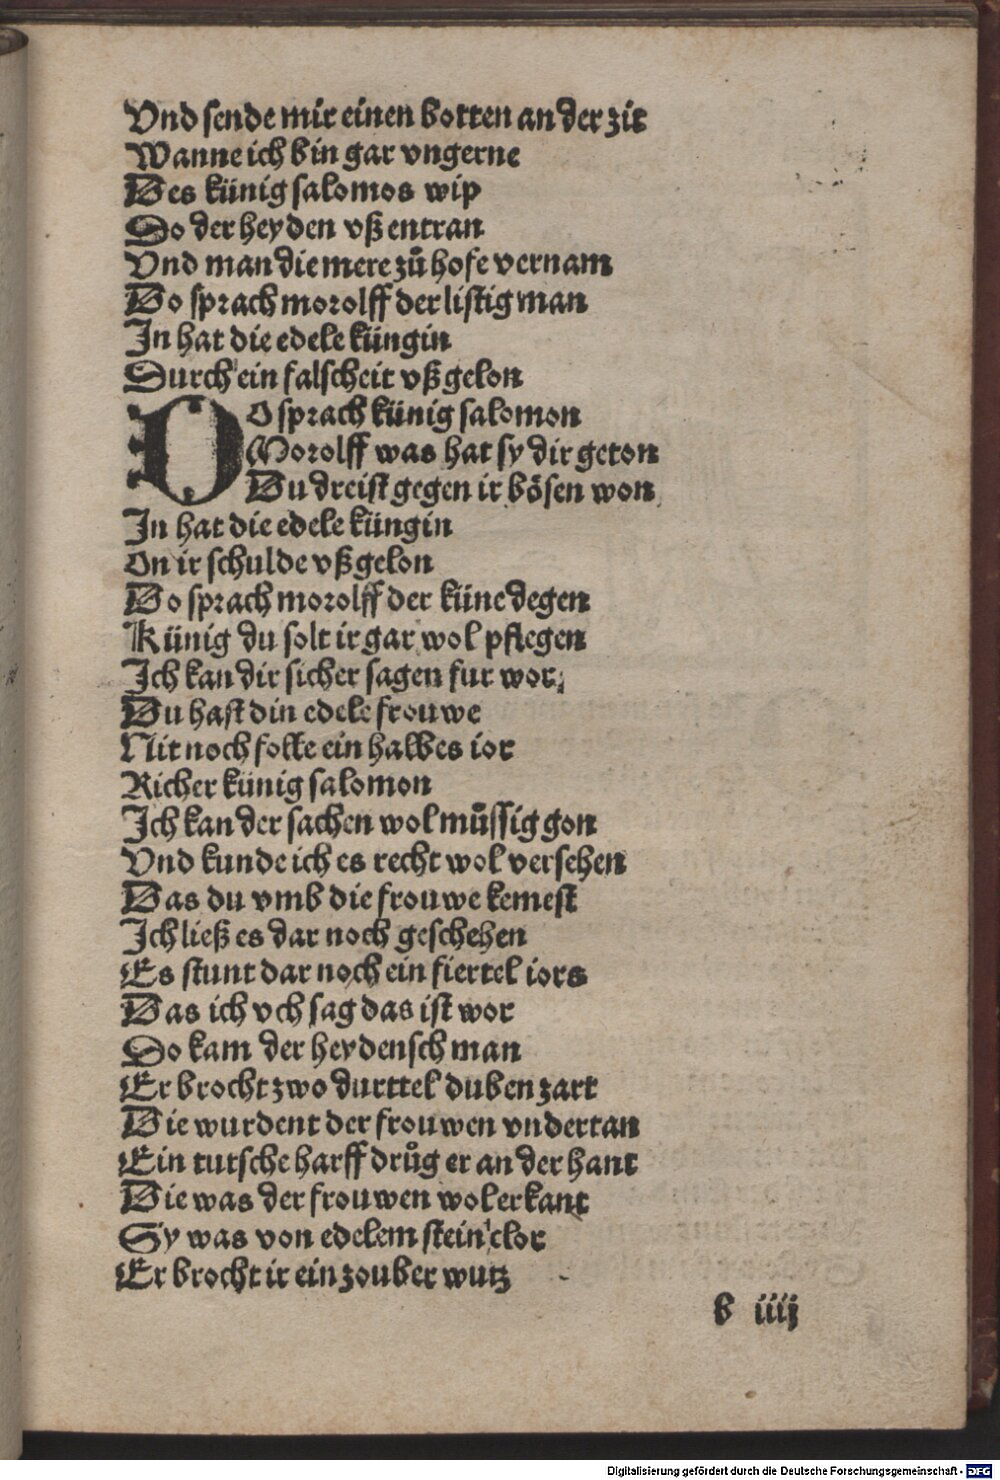 Vnd sende mir einen botten an der zit
Wanne ich bin gar vngerne
Des künig salomos wip
Do der heyden vß entran
Vnd man die mere zů hofe vernam
Do sprach morolff der listig man
In hat die edele küngin
Durch ein falscheit vßgelon
DO sprach künig salomon
Morolff was hat sy dir geton
Du dreist gegen ir bösen won
In hat die edele küngin
On ir schulde vßgelon
Do sprach morolff der küne degen
Künig du solt ir gar wol pflegen
Ich kan dir sicher sagen fur wor
Du hast din edele frouwe
Nit noch folle ein halbes ior
Richer künig salomon
Ich kan der sachen wol müssig gon
Vnd kunde ich es recht wol versehen
Das du vmb die frouwe kemest
Ich ließ es dar noch geschehen
Es stunt dar noch ein fiertel iors
Das ich vch sag das ist wor
Do kam der heydensch man
Er brocht zwo durttel duben zart
Die wurdent der frouwen vndertan
Ein tutsche harff drůg er an der hant
Die was der frouwen wol erkant
Sy was von edelem stein clor
Er brocht ir ein zouber wutz
b iiij
Digitalisierung gefördert durch die Deutsche Forschungsgemeinschaft - DFG